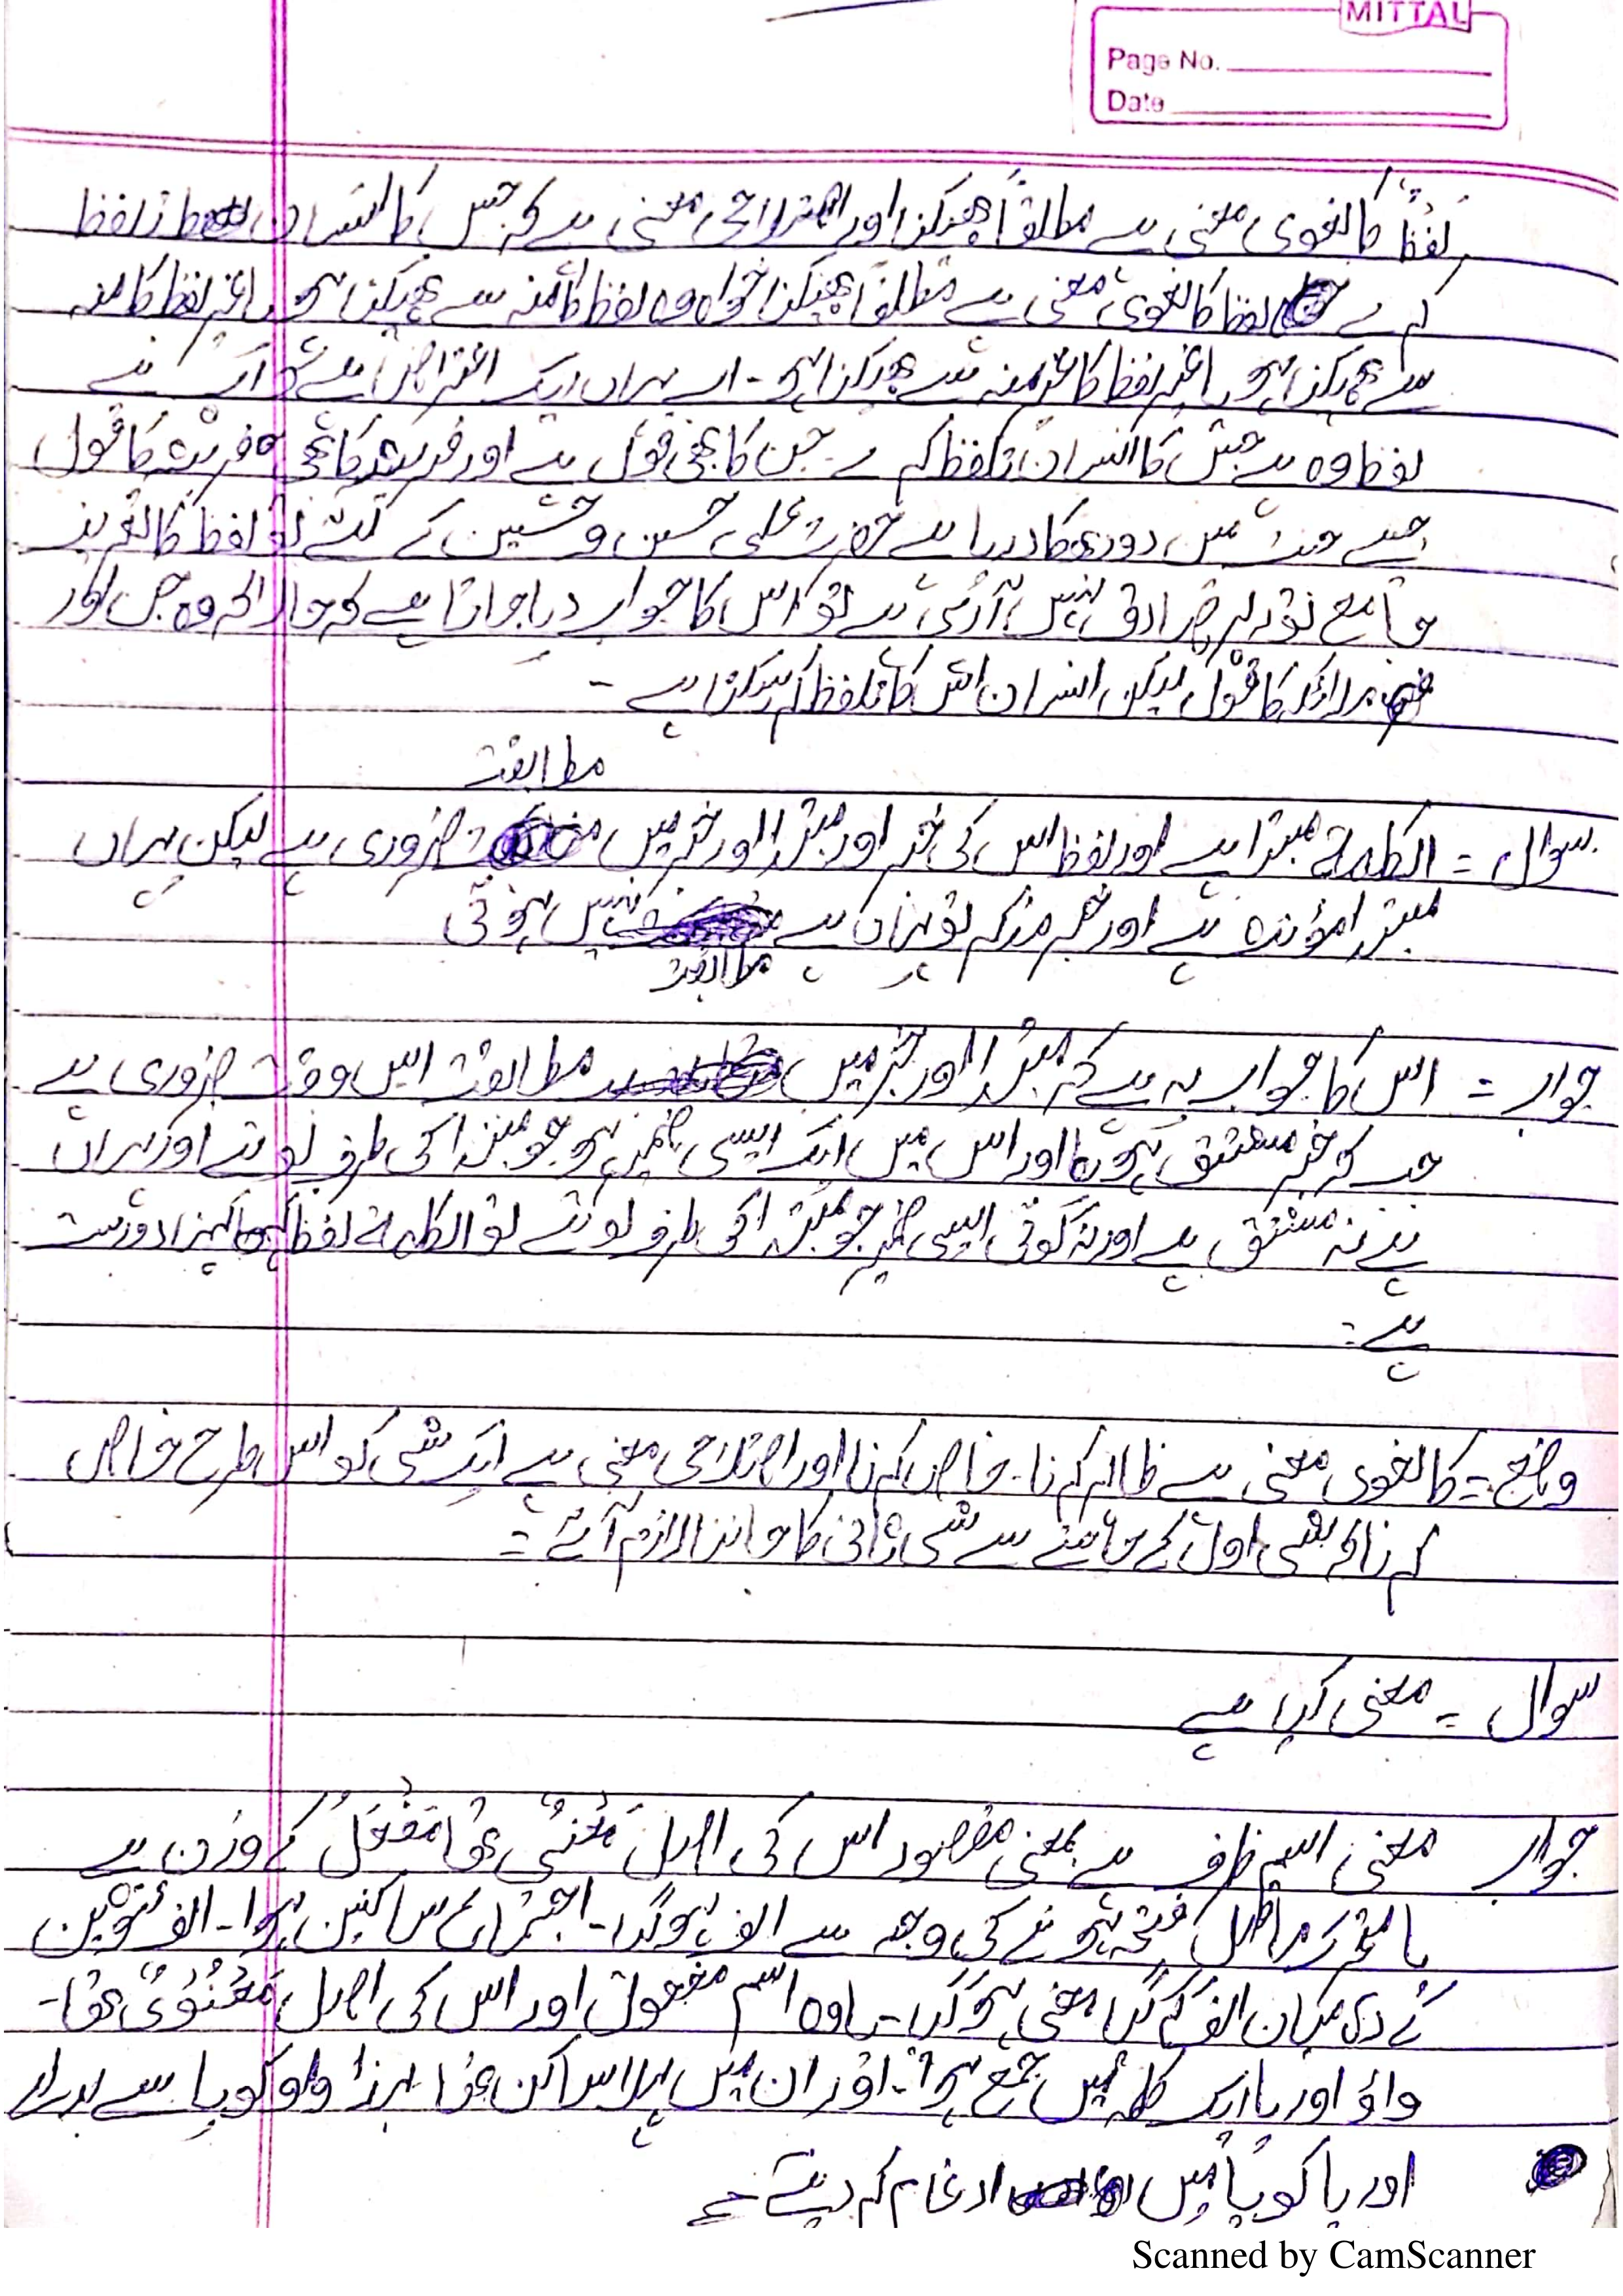 MITTAL
Page No.
Date
لفظً کا لغوی معنی ہے مطلقاً پھیکنا اور معنی ہے کہ جس کا انسان تلفظ
کرے لفظ کا لغوی معنی ہے مطلقاً پھیکنا خواہ وہ لفظ کا منہ سے پھیکنا ہو یا غیر لفظ کا منہ
سے پھیکنا ہو یا غیر لفظ کا غیر منہ سے پھیکنا ہو۔ اب یہاں ایک اعتراض ہے کہ آپ نے
لفظ وہ ہے جس کا انسان تلفظ کرے جن کا بھی قول ہے اور فریشتہ کا بھی فریشتہ کا قول
جیسے جنت میں دودھ کا دریا ہے علی حسن و حسین کے لئے تو لفظ کا تعریف
جامع تو نہیں آرہی ہے تو اس کا جواب دیا جاتا ہے کہ حالانکہ وہ جن اور
ملائکہ کا قول لیکن انسان اس کا تلفظ کر سکتا ہے ۔
مطابقت
سوال = الکلمۃ مبتدا ہے اور لفظ اس کی خبر اور مبتدا اور خبر میں ضروری ہے لیکن یہاں
مبتدا مؤنث ہے اور خبر مذکر تو یہاں پے نہیں ہوئی
مطابقت
جواب = اس کا جواب یہ ہے کہ مبتدا اور خبر میں مطابقت اس وقت ضروری ہے
جب کہ خبر مشتق ہو اور اس میں ایک ایسی ضمیر ہو جو مبتدا کی طرف لوٹے اور یہاں
پے نہ مشتق ہے اور نہ کوئی ایسی ضمیر جو مبتدا کی طرف لوٹے تو الکلمۃ لفظ کہنا درست
ہے =
وضع = کا لغوی معنی ہے ظاہر کرنا۔ خاص کرنا اور اصتلاحی معنی ہے ایک شی کو اس طرح خاص
کرنا کہ شی اول کے جاننے سے شی ثانی کا جاننا لازم آئے =
سوال = معنی کیا ہے
جواب معنی اسم ظرف ہے بمعنی مقصود اس کی اصل مَعْنَیٌ تھا مَفْعَلٌ کے وزن پے
یا متحرک ماقبل فتحہ ہونے کی وجہ سے الف ہوگیا۔ اجتماع ساکنین ہوا۔ الف تنوین
کے درمیان الف گر گیا معنی ہو گیا۔ یا وہ اسم مفعول اور اس کی اصل مَعْنُوْیٌ تھا۔
واؤ اور یا ایک کلمہ میں جمع ہوا۔ اور ان میں پہلا ساکن تھا لہذا واو کو یا سے بدلا
اور یا کو یا میں ادغام کر دیتے ہے
Scanned by CamScanner